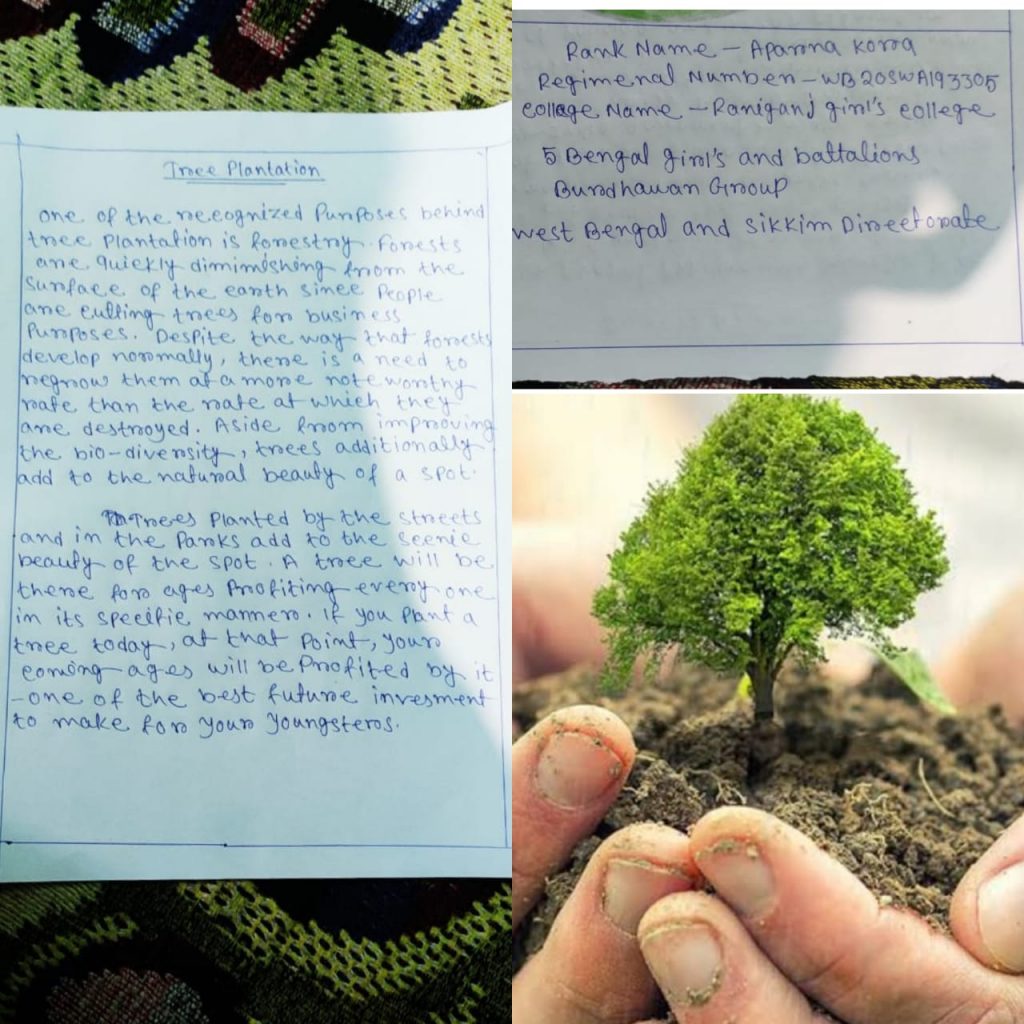 Tree Plantation
One of the recognized Purposes behind
tree Plantation is forestry. Forests
are quickly dimimishing from the
Surface of the earth since People
are cutting trees for business
Purposes. Despite the way that forests
develop normally, there is a need to
regrow them at a more noteworthy
rate than the rate at which they
are destroyed. Aside from improving
the bio-diversity, trees additionally
add to the natural beauty of a spot.
Trees Planted by the streets
and in the Parks add to the scenic
beauty of the spot. A tree will be
there for ages Profiting every one
in its specific manner. If you Plant a
tree today, at that Point, your
coming ages will be Profited by it
-one of the best future invesment
to make for your youngsters.
Rank Name - Aparna Kora
Regimenal Number - WB20SWA193305
College Name - Raniganj girl's college
5 Bengal girl's and battalions
Burdhawan Group
West Bengal and Sikkim Directorate